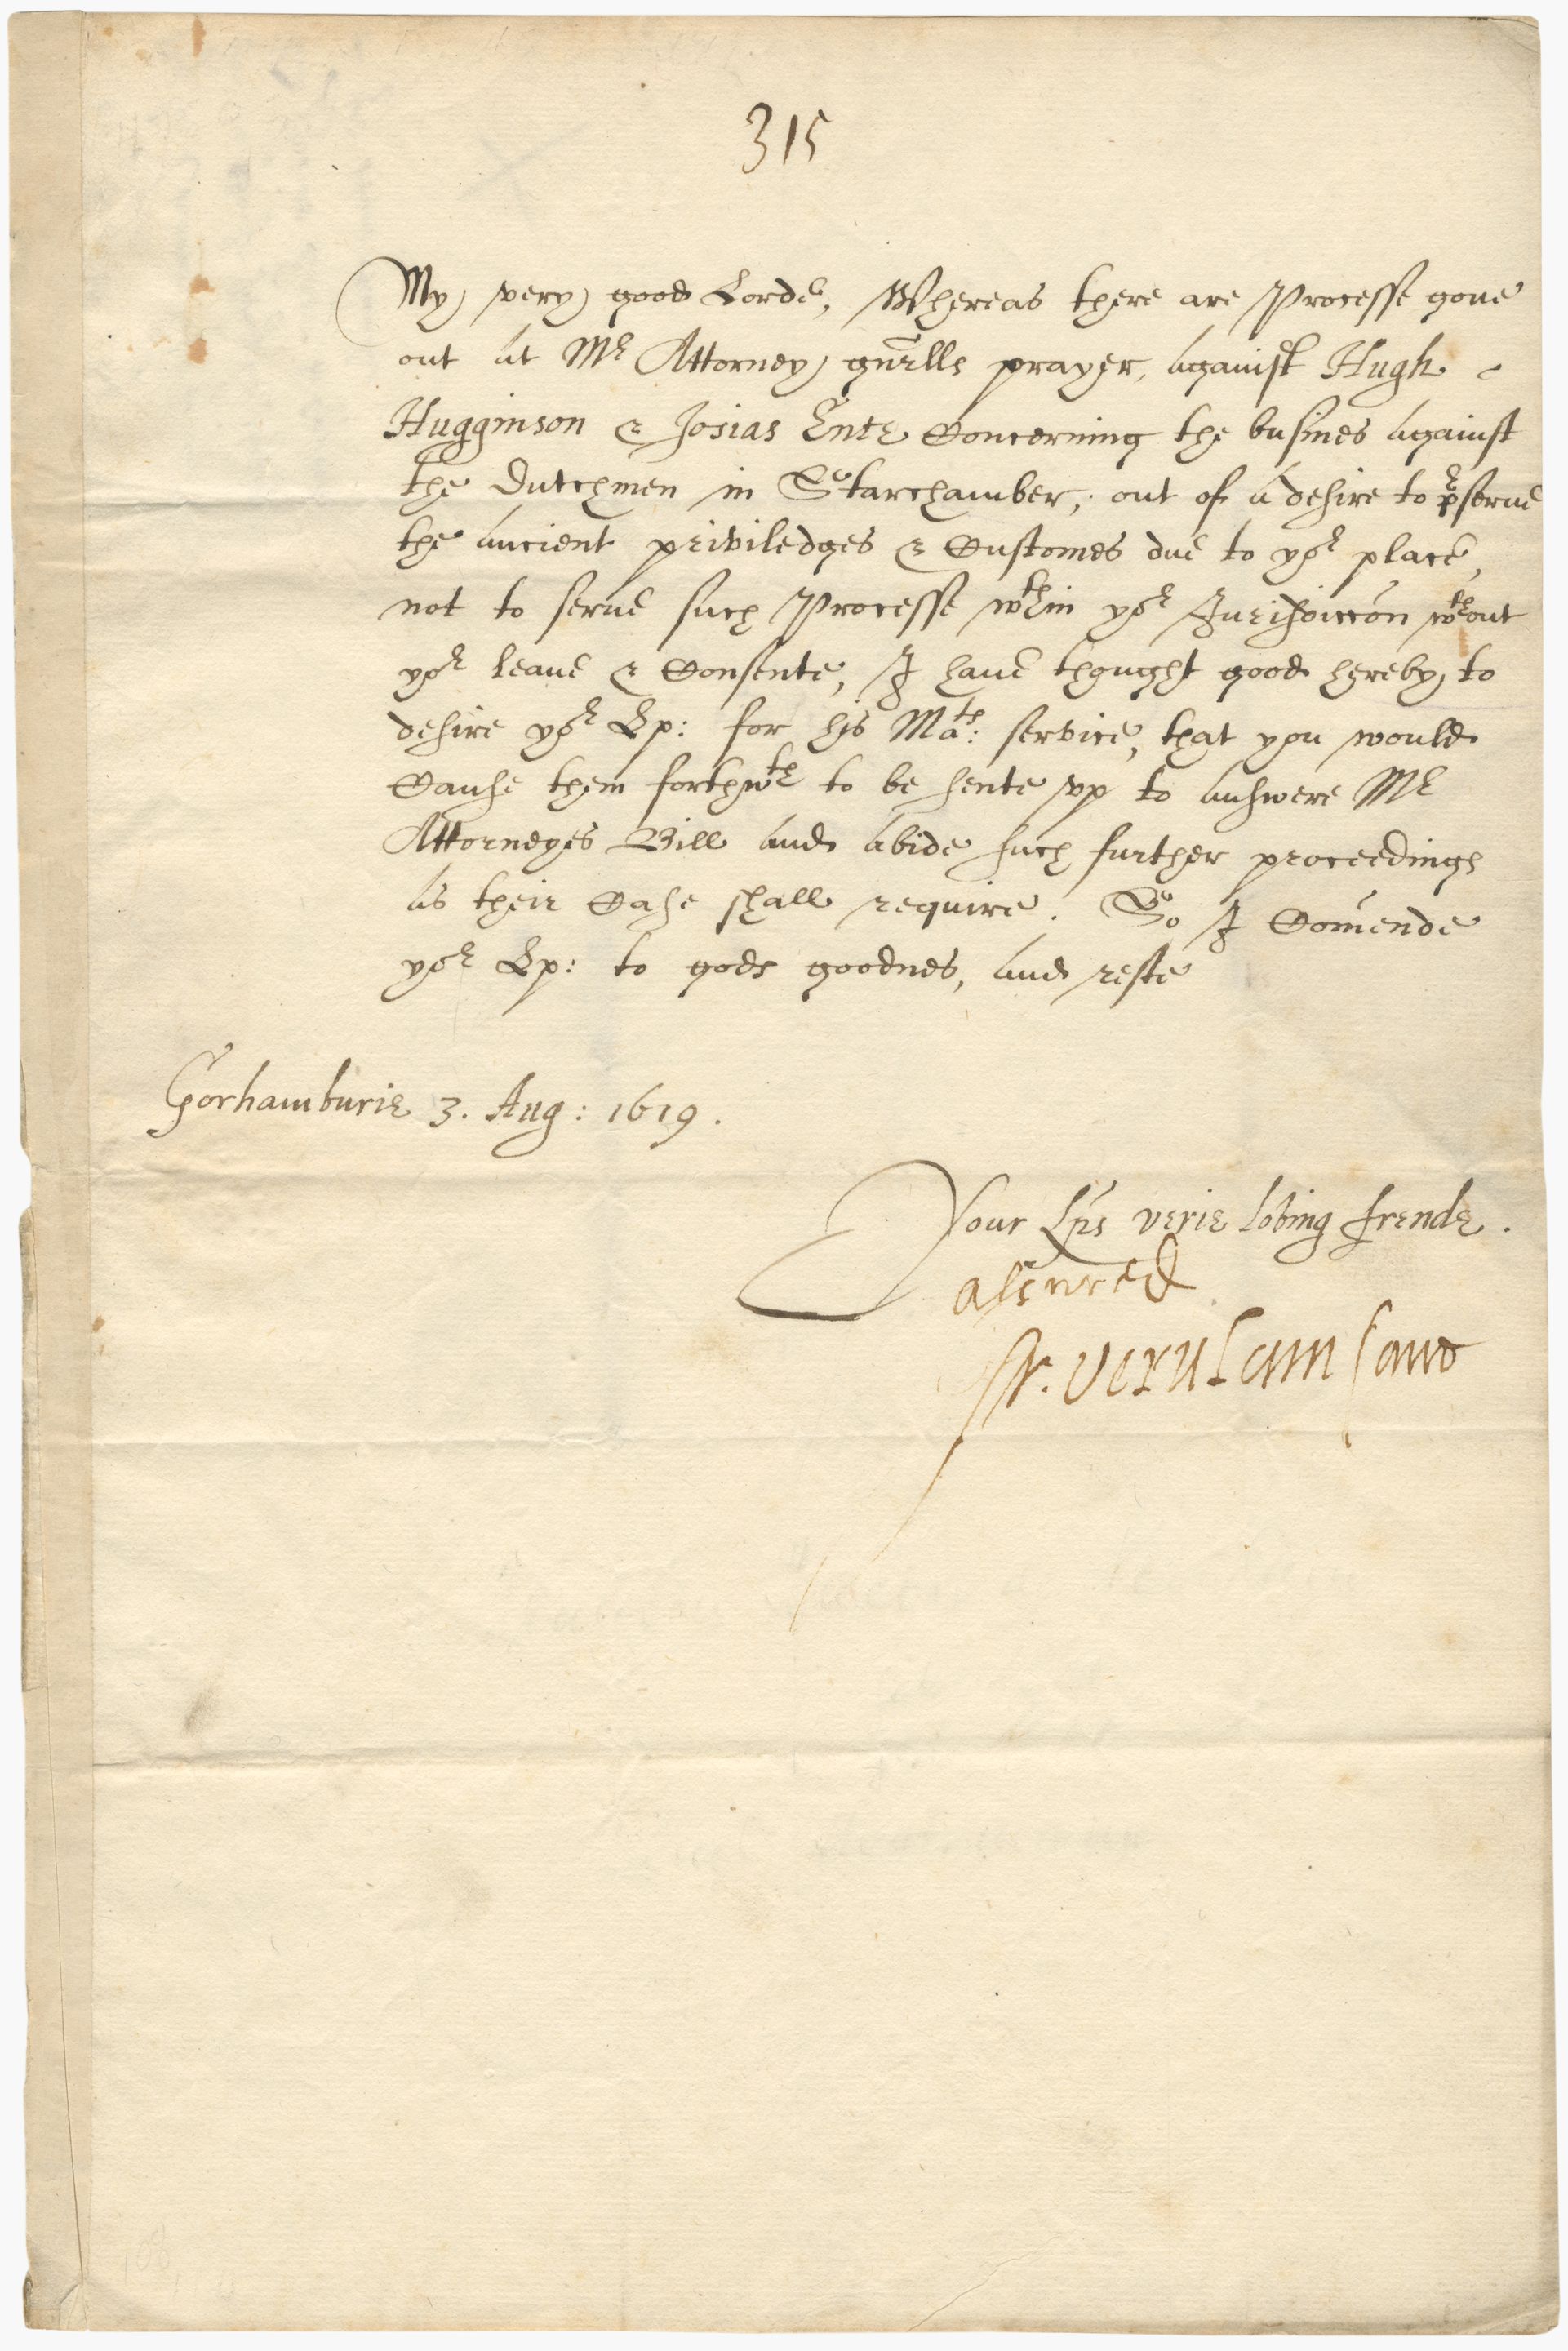 315
My very good Lorde, Whereas there are Processe gone
out at Mr Attorney gnrlls prayer, against Hugh
Hugginson & Josias Ente Concerning the busines against
the Dutchmen in Starchamber, out of a desire to pserue
the ancient priviledges & Customes due to yor place,
not to serue such Processe wthin yor Jurisdiccon wthout
yor leaue & Consente, I haue thought good hereby to
desire yor Lp: for his Mats: service, that you would
Cause them forthwth to be sente vp to answere Mr
Attorneyes Bill and abide such further proceedings
as their Case shall require. So I Comende
yor Lp: to gods goodnes, and reste
Gorhamburie 3. Aug: 1619.
Your Lps verie loving frende.
assured
Fr. Verulam Canc